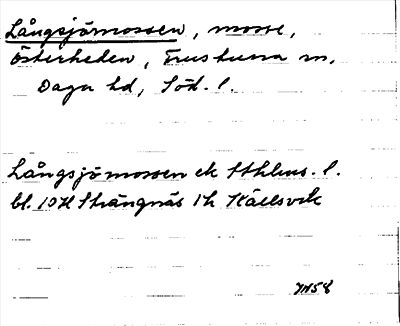 Långsjömossen, mosse,
Österheden, Frustuna sn,
Daga hd, Söd. l.
Långsjömossen ek Sthlms. l.
bl. 10H Strängnäs 1h Kållsvik